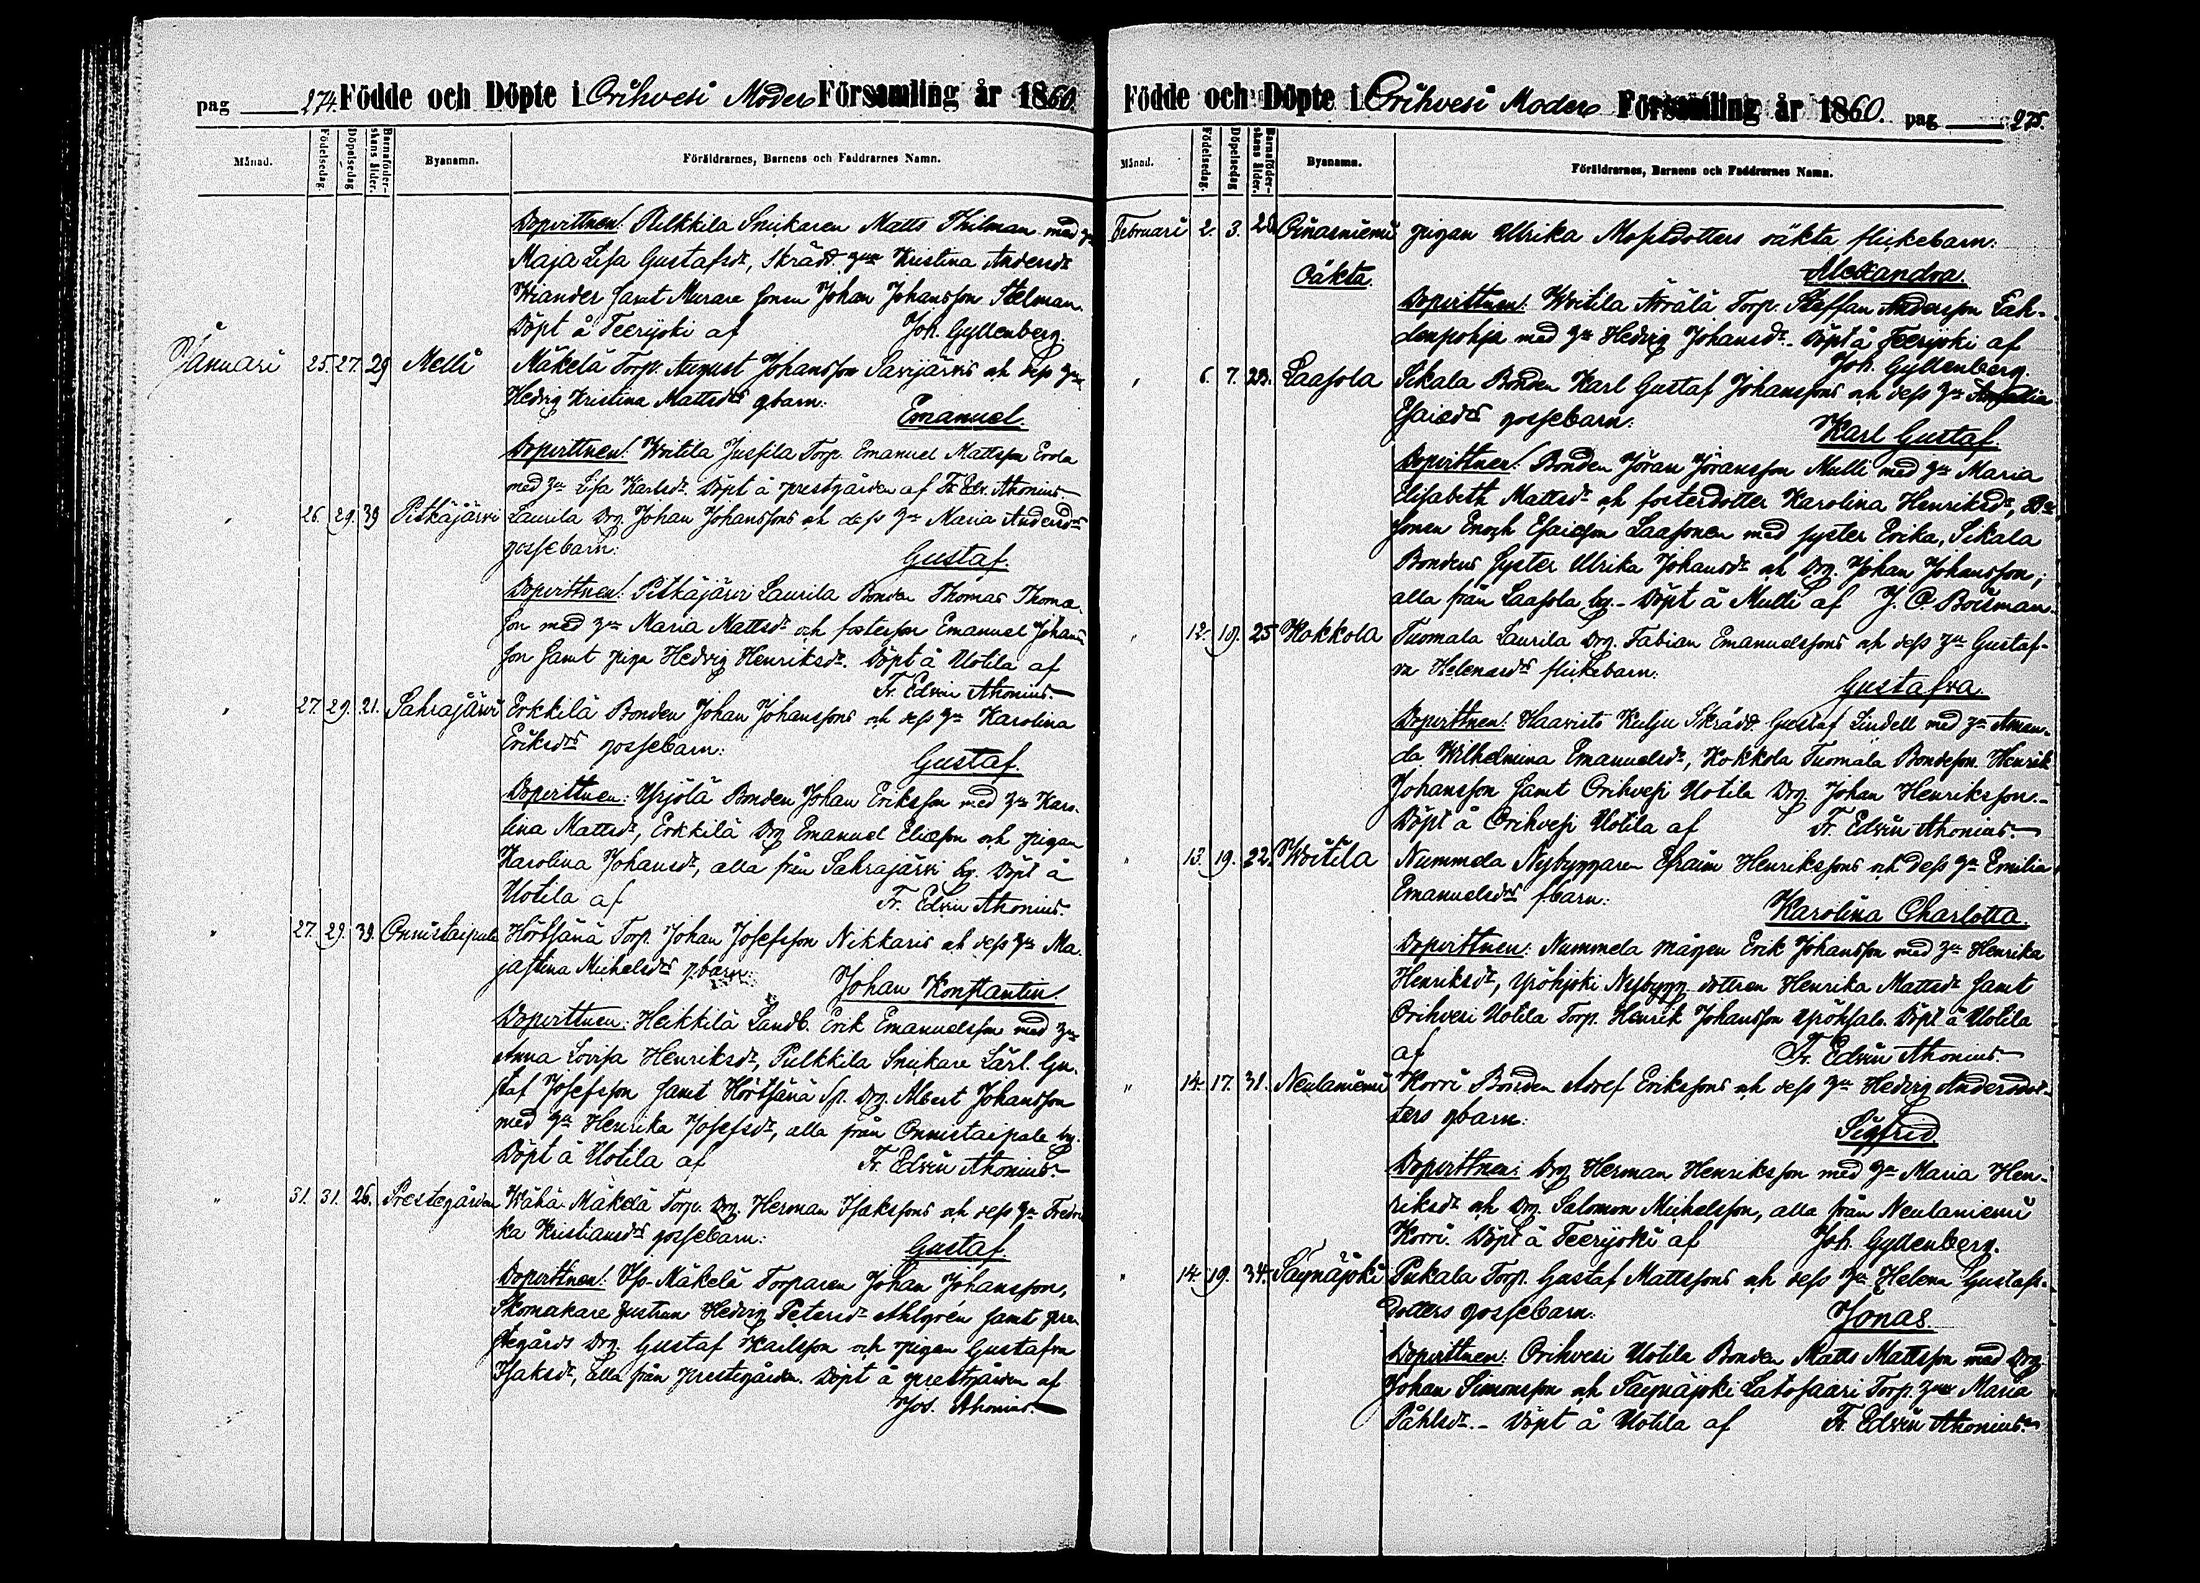 pag 274. Födde och Döpte i Orihvesi Moder Församling år 1860.
Månad. Födelsedag. Döpelsedag Barnaföderskans ålder. Byanamn. Föräldrarnes, Barnens och Faddrarnes Namn.
Dopvittnen: Pelkkila Snickaren Matts Thilman med
Maja Lisa Gustafsdr, Skrädd. Kristina Andersdr
Wiander samt Murare sonen Johan Johansson Stelman.
Döpt å Teerijoki af Joh. Gyllenberg.
Januari 25. 27. 29 Melli Mäkelä Torp. August Johansson Savijärvis och dess
Hedvig Kristina Mattsdrs gbarn: Emanuel.
Dopvittnen: Woitila Jussila Torp. Emanuel Mattsson Erola
med hu Lisa Karlsdr. Döpt å prestgården af Fr. Edv. Ahonius.
26. 29. 39 Pitkäjärvi Laurila Drg. Johan Johanssons och dess hu Maria Andersdrs
gossebarn: Gustaf.
Dopvittnen: Pitkäjärvi Laurila Bonden Thomas Thomas-
son med hu Maria Mattsdr och fosterson Emanuel Johans
son samt piga Hedvig Henriksdr. Döpt å Uotila af
Fr. Edvin Ahonius.
27. 29. 21. Sahrajärvi Erkkilä Bonden Johan Johanssons och dess hu Karolina
Eriksdrs gossebarn: Gustaf.
Dopvittnen: Yrjölä Bonden Johan Eriksson med hu Karo-
lina Mattsdr, Erkkilä Drg Emanuel Eliasson och pigan
Karolina Johansdr, alla från Sahrajärvi by. Döpt å
Uotila af Fr. Edvin Ahonius.
" 27. 29. 39. Onnistaipale Hörtsänä Torp. Johan Josefsson Nikkaris och dess hu Ma-
jastina Michelsdrs gbarn: Johan Konstantin.
Dopvittnen: Heikkilä Landb. Erik Emanuelsson med hu
Anna Lovisa Henriksdr, Pulkkila Snickare Lärl. Gu-
staf Josefsson samt Hörtsänä Sp. Drg. Albert Johansson
med hu Henrika Josefsdr, alla från Onnistaipale by.
Döpt å Uotila af Fr. Edvin Ahonius.
" 31. 31. 26. Prestegården Wähä Mäkelä Torp. Drg. Herman Isakssons och dess hu Fredri
ka Kristiansdrs gossebarn: Gustaf.
Dopvittnen: Iso-Mäkelä Torparen Johan Johansson,
Skomakare hustrun Hedvig Petersdr Ahlgrén samt pre-
stegårds Drg. Gustaf Karlsson och pigan Gustafva
Isaksdr, alla från prestegården. Döpt å prestgården af
Jos. Ahonius.
Födde och Döpte i Orihvesi Moder Församling år 1860. pag 275.
Månad. Födelsedag. Döpelsedag Barnaföderskans ålder. Byanamn. Föräldrarnes, Barnens och Faddrarnes Namn.
Februari 2. 3. Oinasniemi pigan Ulrika oäkta flickebarn:
Oäkta. Alexandra.
Dopvittnen: Woitila Arrälä Torp. Staffan Andersson Lah-
denpohja med hu Hedvig Johansdr. Döpt å Teerijoki af
Joh. Gyllenberg.
6. 7. 23. Laasola Sikala Bonden Karl Gustaf Johanssons och dess hu
Esaiedrs gossebarn: Karl Gustaf.
Dopvittnen: Bonden Jöran Jöransson Mulli med hu Maria
Elisabeth Mattsdr och fosterdotter Karolina Henriksdr,
sonen Enoch Esaiesson Laasonen med syster Erika, Sikala
Bondens syster Ulrika Johansdr och Drg. Johan Johansson;
alla från Laasola by. Döpt å Mulli af J. C. Boisman.
12. 19. 25 Kokkola Tuomala Laurila Drg. Fabian Emanuelssons och dess hu Gustaf-
va Helenasdrs flickebarn: Gustafva.
Dopvittnen: Haavisto Kulju Skrädd. Gustaf Lindell med hu Aman-
da Wilhelmina Emanuelsdr, Kokkola Tuomala Bondeson Henrik
Johansson samt Orihvesi Uotila Drg Johan Henriksson.
Döpt å Orihvesi Uotila af Fr. Edvin Ahonius.
" 13. 19. 22. Woitila Nummela Nybyggaren Efraim Henrikssons och dess hu Emilia
Emanuelsdrs fbarn: Karolina Charlotta.
Dopvittnen: Nummela mågen Erik Johansson med hu Henrika
Henriksdr, Nybygg. dottren Henrika Mattsdr samt
Orihvesi Uotila Torp. Henrik Johansson. Döpt å Uotila
af Fr. Edvin Ahonius.
" 14. 17. 31. Neulaniemi Korri Bonden Adolf Erikssons och dess hu Hedvig Andersdot-
ters gbarn: Sigfrid
Dopvittnen: Drg Herman Henriksson med hu Maria Hen-
riksdr och Drg Salomon Michelsson, alla från Neulaniemi
Korri. Döpt å Teerijoki af Joh. Gyllenberg.
" 14. 19. 34. Säynäjoki Pukala Torp. Gustaf Mattssons och dess hu Helena Gustafs-
dotters gossebarn: Jonas.
Dopvittnen: Orihvesi Uotila Bonden Matts Mattsson med Drg.
Johan Simonsson och Säynäjoki Latosaari Torp. Maria
Påhlsdr. Döpt å Uotila af Fr. Edvin Ahonius.